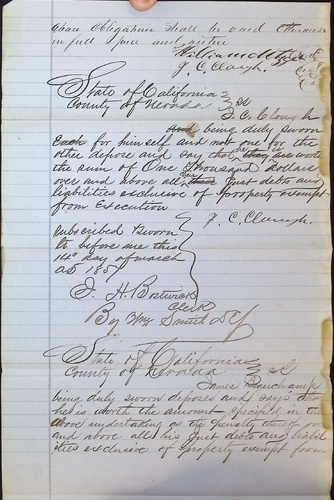 above obligation shall be void otherwise
in full force and virtue
J. C. Clough.
State of California
County of Nevada } SS
J. C. Clough
being duly sworn
Each for himself and not one for the
other depose and say that are worth
the sum of One Thousand Dollars
over and above all Just debts and
liabilities exclusive of property exempt
from Execution
J. C. Clough.
Subscribed & sworn
to before me this
14th day of March
AD 185
J. H. Bostwick
Clerk
By Wm Smith D C
State of California
County of Nevada } SS
James Beauchamp
being duly sworn deposes and says that
he is worth the amount specified in the
above undertaking as the penalty thereof over
and above all his Just debts and liabil
ities exclusive of property exempt from